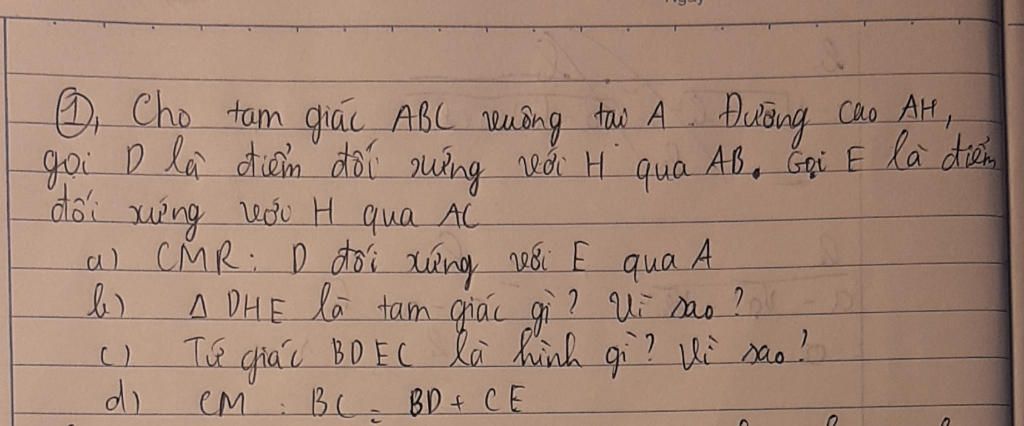 ①, Cho tam giác ABC vuông tại A. Đường cao AH,
gọi D là điểm đối xứng với H qua AB. Gọi E là điểm
đối xứng với H qua AC
a) CMR: D đối xứng với E qua A
b) Δ DHE là tam giác gì? Vì sao?
c) Tứ giác BDEC là hình gì? Vì sao?
d) CM: BC = BD + CE